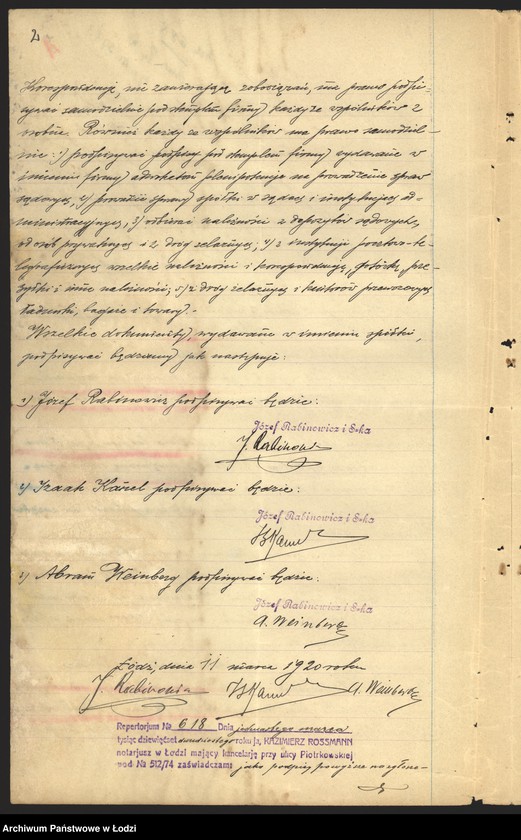 2
Korespondencję, nie zawierającą zobowiązań, ma prawo podpi-
sywać samodzielnie pod stemplem firmy każdy ze wspólników z
osobna. Również każdy ze wspólników ma prawo samodziel-
nie: 1) podpisywać pod stemplem firmy wydawane w
imieniu firmy adwokatom plenipotencje na prowadzenie spraw
sądowych, 2) prowadzić sprawy spółki w sądach i instytucjach ad-
ministracyjnych, 3) odbierać należności z depozytów sądowych,
od osób prywatnych i z dróg żelaznych, 4) z instytucji pocztowo-te-
legraficznych wszelkie należności i korespondencję, gotówkę, prze-
syłki i inne należności, 5) z dróg żelaznych i kantorów przewozowych
ładunki, bagaże i towary.-
Wszelkie dokumenty wydawane w imieniu spółki,
podpisywać będziemy jak następuje:
1) Józef Rabinowicz podpisywać będzie:
Józef Rabinowicz i S-ka
J. Rabinowicz
2) Izaak Karel podpisywać będzie:
Józef Rabinowicz i S-ka
3) Abram Weinberg podpisywać będzie:
Józef Rabinowicz i S-ka
A. Weinberg
Łódź, dnia 11 marca 1920 roku
J. Rabinowicz A. Weinberg
Repertorjum № 618 Dnia jedenastego marca
tysiąc dziewięćset dwudziestego roku ja, KAZIMIERZ ROSSMANN
notarjusz w Łodzi mający kancelarję przy ulicy Piotrkowskiej
pod № 512/74 zaświadczam: jako podpisy powyższe na zgłosze-
Archiwum Państwowe w Łodzi